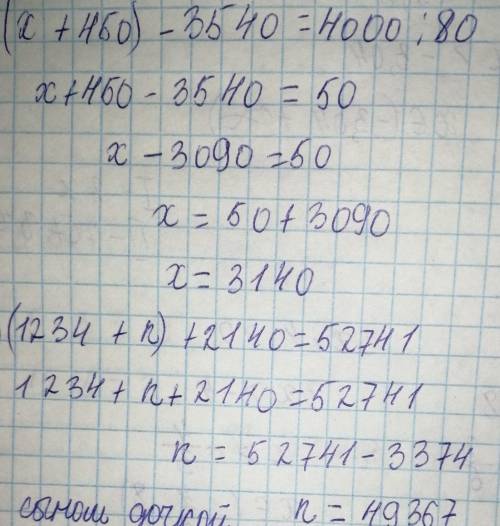 (x + 450) - 3540 = 4000 : 80
x + 450 - 3540 = 50
x - 3090 = 50
x = 50 + 3090
x = 3140
(1234 + n) + 2140 = 52741
1234 + n + 2140 = 52741
n = 52741 - 3374
сыном дочкой n = 49367